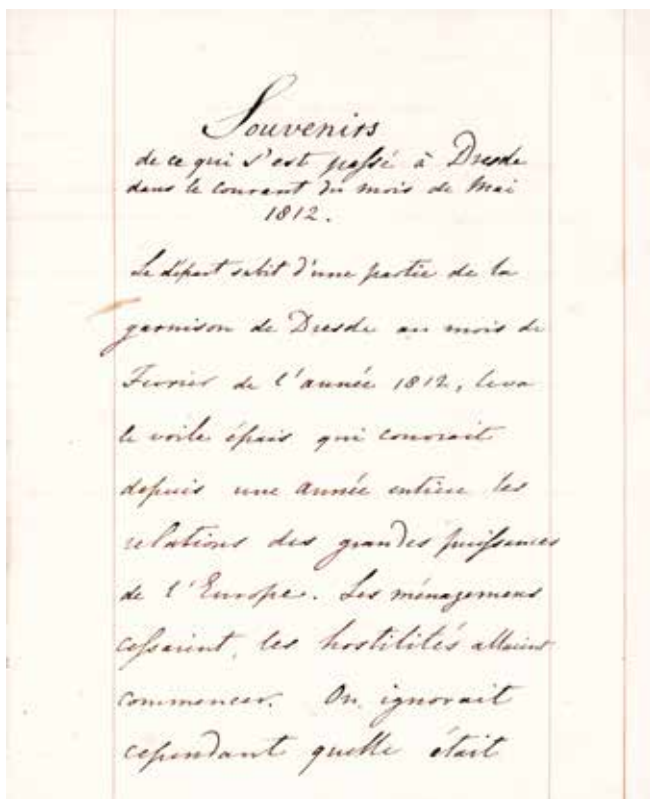 Souvenirs
de ce qui s'est passé à Dresde
dans le courant du mois de Mai
1812.
Le départ subit d'une partie de la
garnison de Dresde au mois de
Fevrier de l'année 1812, leva
le voile épais qui couvrait
depuis une année entière les
relations des grandes puissances
de l'Europe. Les ménagemens
cessaient, les hostilités allaient
commencer. On ignorait
cependant quelle était